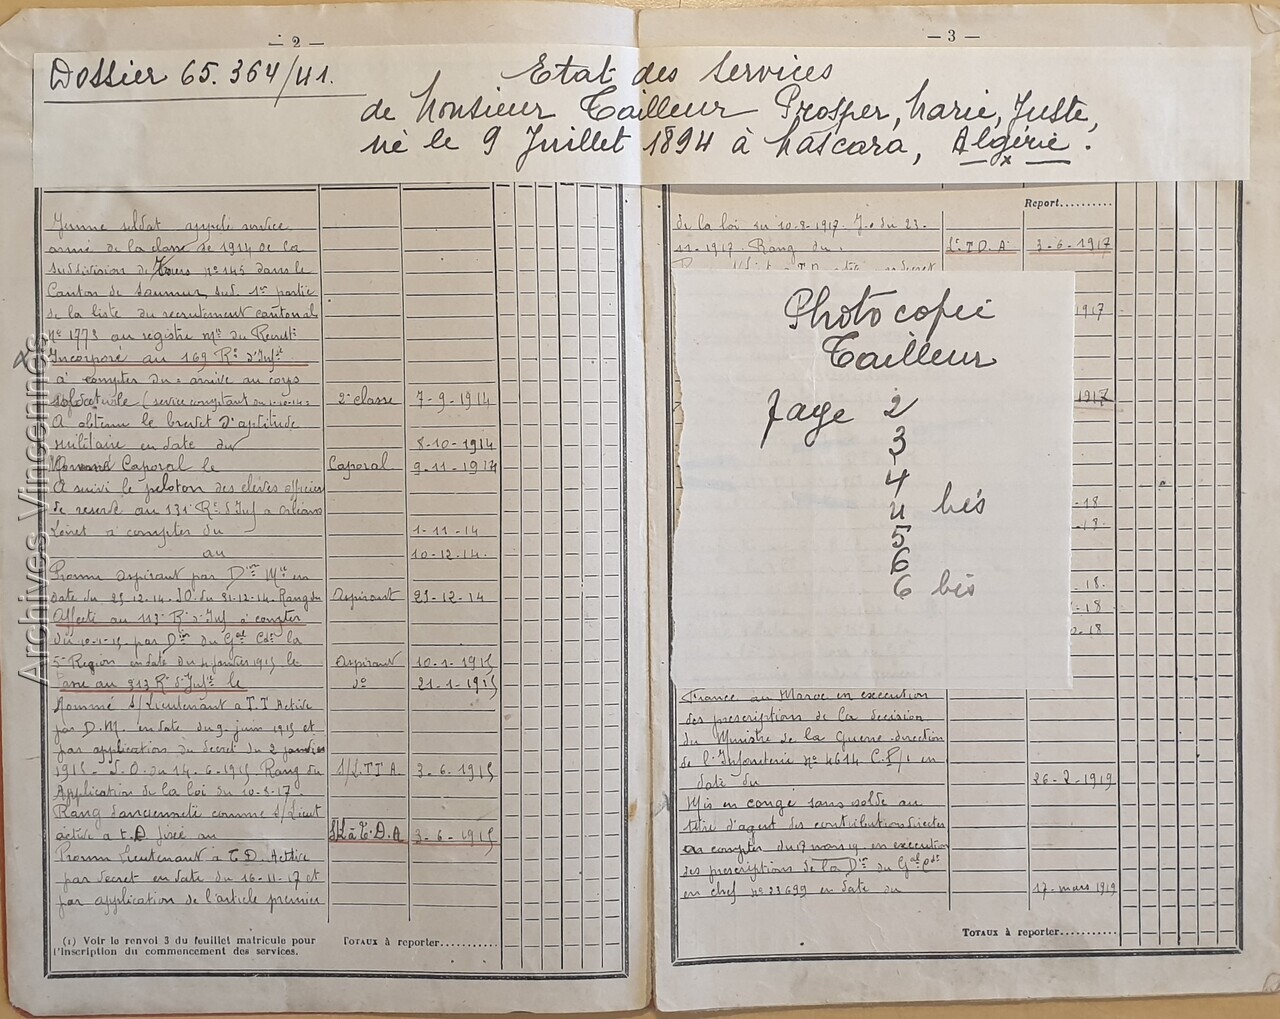 — 2 —
Dossier 65.364/41.
Etat des services
de Monsieur Tailleur Prosper, Marie, Juste,
né le 9 Juillet 1894 à Mascara, Algérie.
Jeune soldat appelé service
armé de la classe de 1914 de la
subdivision de Tours n° 145 dans le
Canton de Saumur sud 1re partie
de la liste du recrutement cantonal
n° 1773 au registre mle du Recrut
Incorporé au 169 Rt d'Infie
à compter du = arrivé au corps
soldat de (service comptant du 1-10-14) 2e classe 7-9-1914
A obtenu le brevet d'aptitude
militaire en date du 8-10-1914
Nommé Caporal le Caporal 9-11-1914
A suivi le peloton des élèves officiers
de réserve au 131e Rt d'Inf à Orléans
Loiret à compter du 1-11-14
au 10-12-14.
Promu aspirant par Don Mlle en
date du 25-12-14. JO du 31-12-14. Rang du Aspirant 25-12-14
Affecté au 113e Rt d'Inf à compter
du 10-1-15 par Don du Gal Cdt la
5e Région en date du 4 janvier 1915 le Aspirant 10-1-1915
Passé au 313 Rt d'Infie le d° 21-1-1915
Nommé s/Lieutenant à T.T Active
par D.M. en date du 9 juin 1915 et
par application du décret du 2 janvier
1915 - J.O. du 14-6-1915 Rang du S/L.T.T.A. 3-6-1915
Application de la loi du 10-8-17
Rang d'ancienneté comme s/Lieut
active à t.D fixé au S/L à T.D.A 3-6-1915
Promu Lieutenant à T.D. Active
par décret en date du 16-11-17 et
par application de l'article premier
(1) Voir le renvoi 3 du feuillet matricule pour
l'inscription du commencement des services.
TOTAUX à reporter...........
— 3 —
Report..........
de la loi du 10-8-1917. J.O du 23-
11-1917. Rang du Lt T.D.A 3-6-1917
1917
1917
-18
-18.
-18.
-18
-18
Photocopie
Tailleur
page 2
3
4
4 bis
5
6
6 bis
France au Maroc en exécution
des prescriptions de la décision
du Ministre de la Guerre direction
de l'Infanterie n° 4614 C.P/1 en
date du 26-2-1919
Mis en congé sans solde au
titre d'agent des contributions directes
à compter du 7 mars 19 en exécution
des prescriptions de la Don du Gal Cdt
en chef n° 23699 en date du 17-mars 1919
TOTAUX à reporter...........
Archives Vincennes